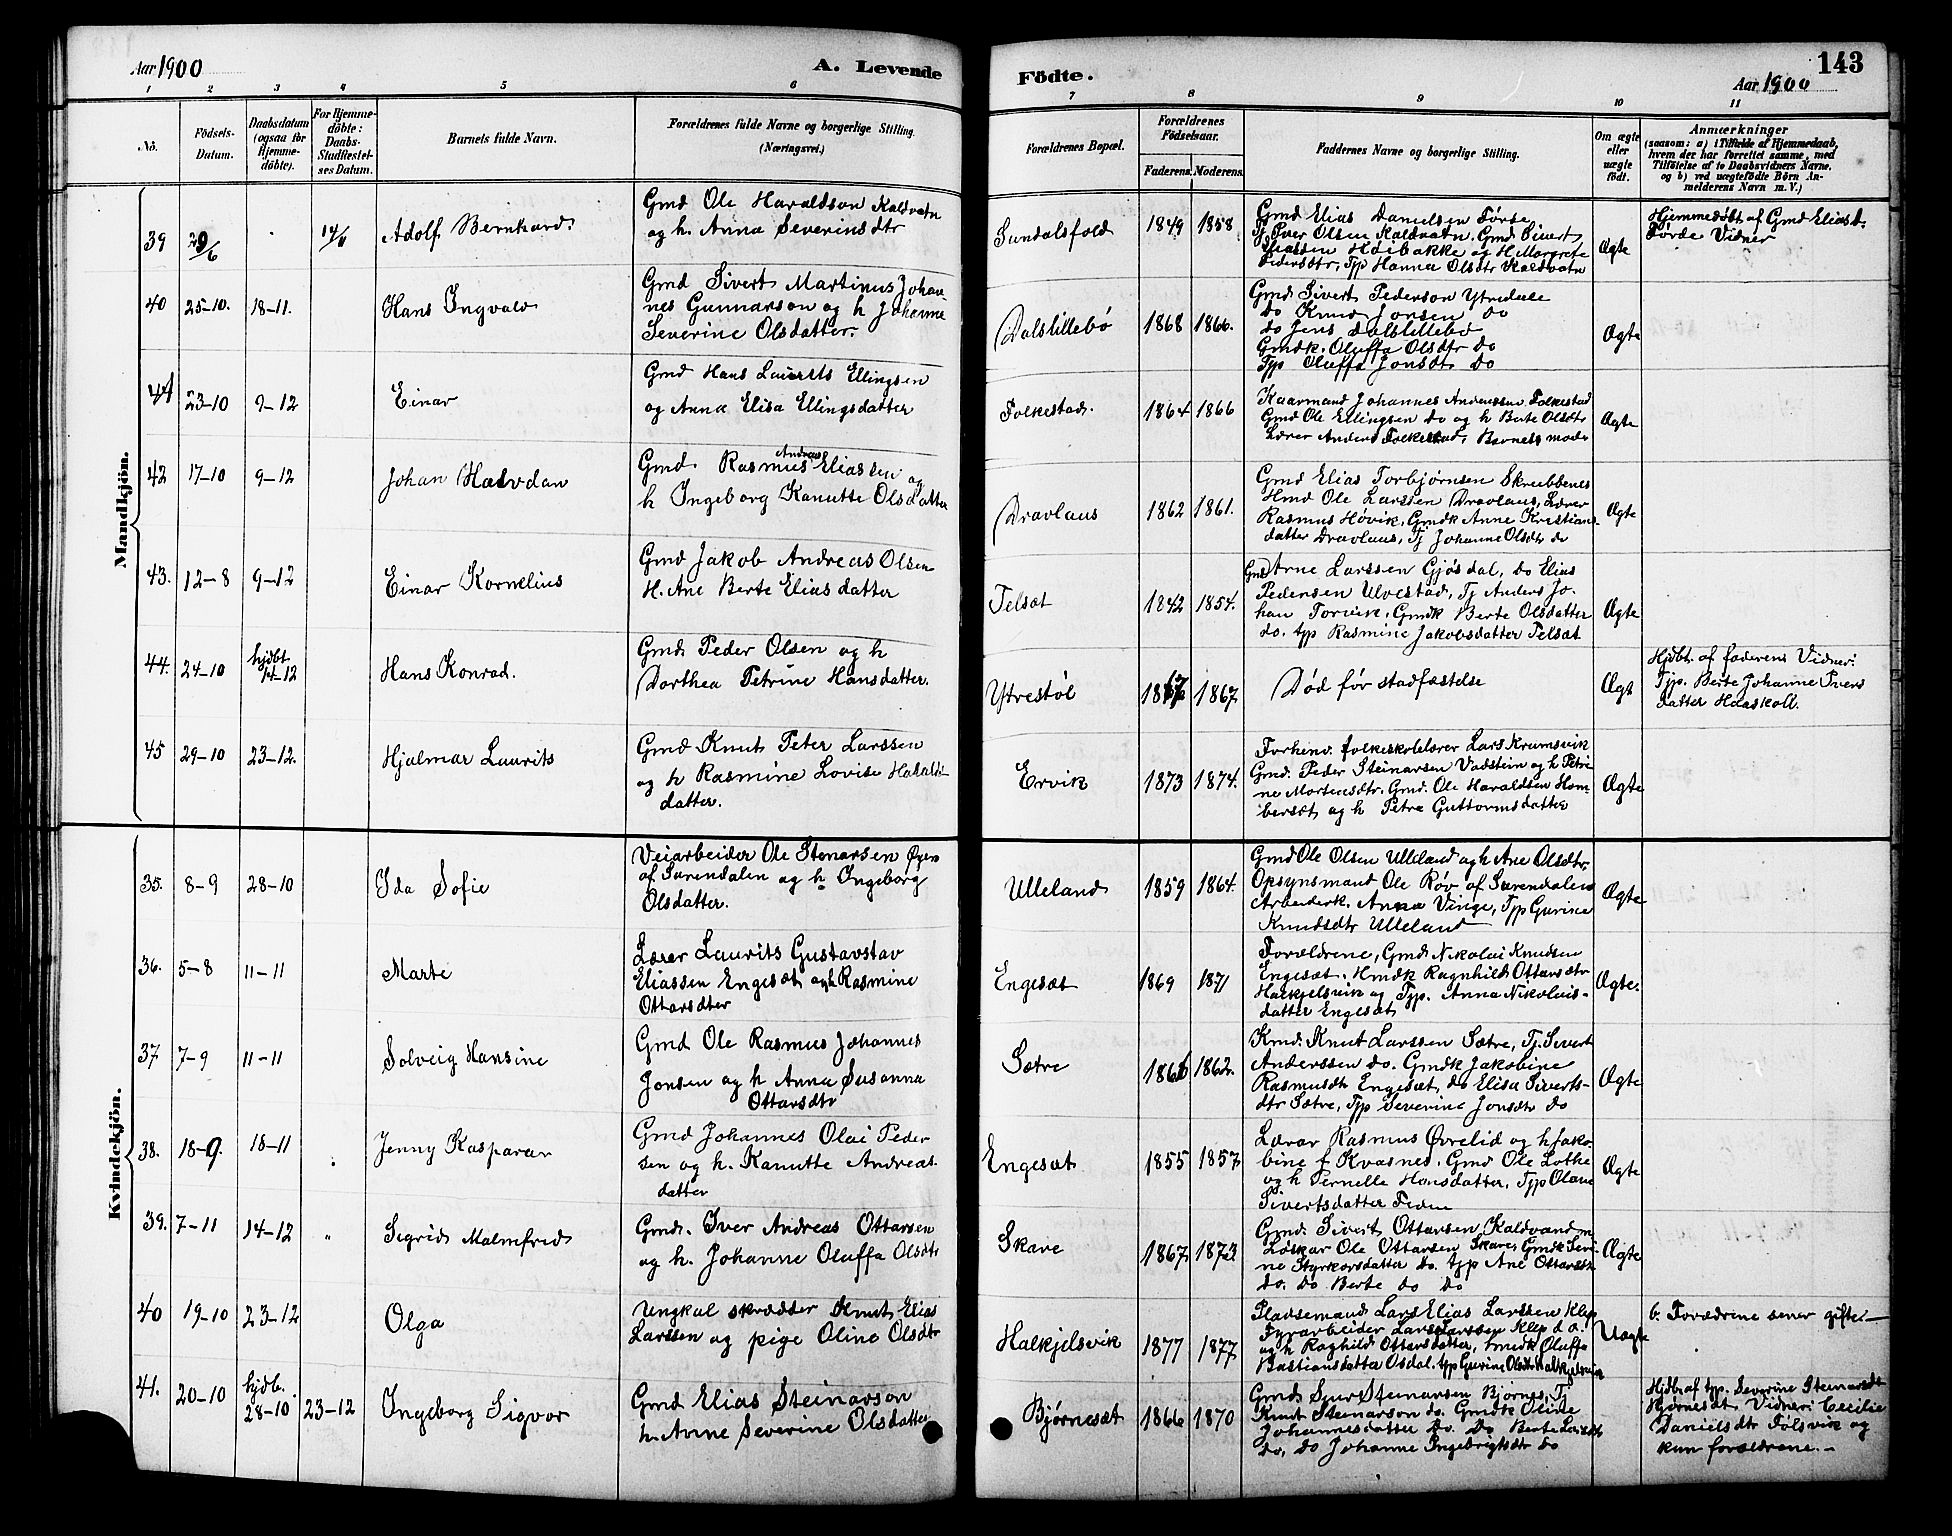 Aar 1900
A. Levende
1 2 3 4 5 6
No.
Födsels-
Datum.
Daabsdatum
(ogsaa for
Hjemme-
döbte).
For Hjemme-
döbte:
Daabs-
Stadfæstel-
ses Datum.
Barnets fulde Navn.
Forældrenes fulde Navne og borgerlige Stilling.
(Næringsvei.)
Mandkjön.
39 29/6 14/11 Adolf Bernhard.
Gmd Ole Haraldson Kaldvatn
og h. Anna Severinsdtr
40 25-10. 18-11. Hans Ingvald
Gmd Sivert Martinus Johan
nes Gunnarson og h Johanne
Severine Olsdatter.
41 23-10 9-12 Einar
Gmd Hans Laurits Ellingsen
og Anna Elisa Ellingsdatter
42 17-10 9-12 Johan Halvdan
Gmd. Rasmus Andreas Eliassen og
h Ingeborg Kanutte Olsdatter
43. 12-8 9-12 Einar Kornelius
Gmd Jakob Andreas Olsen
H. Ane Berte Eliasdatter
44. 24-10 hjdbt 14-12 Hans Konrad.
Gmd. Peder Olsen og h
Dorthea Petrine Hansdatter.
45 29-10 23-12. Hjalmar Laurits
Gmd Knut Peter Larssen
og h Rasmine Lovise Harald-
datter.
Kvindekjön.
35. 8-9 28-10 Ida Sofie
Veiarbeider Ole Stenarsen Øyen
af Surendalen og h Ingeborg
Olsdatter.
36. 5-8 11-11 Marte
Lærer Laurits Gustavstav
Eliassen Engesæt og h Rasmine
Ottarsdter
37 7-9 11-11 Solveig Hansine
Gmd Ole Rasmus Johannes
Jonsen og h Anna Susanna
Ottarsdtr
38. 18-9. 18-11 Jenny Kasparar
Gmd Johannes Olai Peder
sen og h. Kanutte Andreas
datter
39. 7-11 14-12 " Sigrid Malmfrid
Gmd. Iver Andreas Ottarsen
og h. Johanne Oluffa Olsdtr
40 19-10 23-12 Olga
Ungkal skrædder Knut Elias
Larssen og pige Oline Olsdtr
41. 20-10 hjdb. 28-10 23-12 Ingeborg Sigvor
Gmd Elias Steinarson
h. Anne Severine Olsdatter
Födte.
143
Aar 1900
7 8 9 10 11
Forældrenes Bopæl.
Forældrenes
Födselsaar.
Faderens. Moderens.
Faddernes Navne og borgerlige Stilling.
Om ægte
eller
uægte
födt.
Anmærkninger
(saasom: a) i Tilfælde af Hjemmedaab,
hvem der har forrettet samme, med
Tilföielse af to Daabsvidners Navne,
og b) ved uægtefödte Börn An-
melderens Navn m. V.)
Sundalsfold 1849 1858
Gmd Elias Danielsen Førde
Tj Iver Olsen Kaldvatn. Gmd Sivert
Eliassen Høibakke og H. Margrete
Pedersdtr, Tjp Hanna Olsdtr Kaldvatn
Ægte
Hjemmedøbt af Gmd Elias D.
Førde Vidner
Dalslillebø 1868 1866.
Gmd Sivert Pederson Ytredale
do Knud Jonsen do
do Jens Dalslillebø
Gmdk. Oluffa Olsdtr do
Tjp Oluffa Jonsdt do
Ægte
Folkestad. 1864 1866
Kaarmand Johannes Anderssen Folkestad
Gmd Ole Ellingsen do og h Berte Olsdtr
Lærer Anders Folkestad, Barnets moder
Ægte
Dravlaus 1862 1861.
Gmd Elias Torbjørnsen Skrubbenes
Hmd Ole Larssen Dravlaus, Lærer
Rasmus Høvik, Gmdk Anne Kristians-
datter Dravlaus, Tj Johanne Olsdtr do
Ægte
Telsæt 1842 1854.
Gmd Arne Larssen Gjøsdal, do Elias
Pedersen Ulvestad, Tj Anders Jo-
han Torvik, Gmdk Berte Olsdatter
do. tjp Rasmine Jakobsdatter Telsæt
Ægte
Ytrestøl 1867 1867
Død før stadfæstelse
Ægt
Hjdbt. af faderens Vidner:
Tjp. Berte Johanne Ivers
datter Haaskoll.
Ervik 1873 1874.
Forhenv. folkeskolelærer Lars Krumsvik
Gmd. Peder Steinarsen Vadstein og h Petri-
ne Mortensdtr. Gmd. Ole Haraldsen Hom
bersæt og h Petra Guttormsdatter
Ægte
Ulleland 1859 1864.
Gmd Ole Olsen Ulleland og h Ane Olsdtr.
Opsynsmand Ole Røv af Surendalen
Arbeiderk. Anna Vinge, Tjp Gurine
Knudsdtr Ulleland
Ægte
Engesæt 1869 1871
Forældrene, Gmd Nikolai Knudsen
Engesæt. Hmdk Ragnhild Ottarsdtr
Halkjelsvik og Tjp. Anna Nikolais-
datter Engesæt
Ægte.
Sætre 1866 1862.
Kmd. Knut Larssen Sætre, Tj. Sivert
Anderssen do. Gmdk Jakobine
Rasmusdt Engesæt, do Elisa Siverts-
dtr Sætre, Tjp Severine Jonsdtr do
Ægte
Engesæt 1855 1857
Lærar Rasmus Øvrelid og h Jako-
bine f Kvasnes. Gmd Ole Lothe
og h Pernelle Hansdatter, Tjp Olave
Sivertsdatter
Ægte
Skare 1867 1873
Gmd Sivert Ottarsen Kaldvand
Løskar Ole Ottarsen Skare Gmdk Seve-
rine Styrkorsdatter do. tjp Ane Ottarsdt
do. do Berte do do
Ægte
Halkjelsvik 1877 1877
Pladsemand Lars Elias Larssen Klep
Fyrarbeider Lars Larssen Klep d o.
og h Raghild Ottarsdatter, Gmdk Oluffa
Bastiansdatter Osdal. tjp Gurine Olsdtr Halkjelsvik
Uægte
b. Forældrene sener gifte
Bjørnesæt 1866 1870
Gmd. Sjur Steinarsen Bjørnes, Tj
Knut Steinarson do. Gmdk Oline
Johannesdatter do. Do Berte
do, do Johanne Ingebrigtsdtr do
Hjdb. af tjp. Severine Steinarsdt
Bjørnesæt. Vidner: Cecilie
Danielsdtr Følsvik og
kun forældrene.-